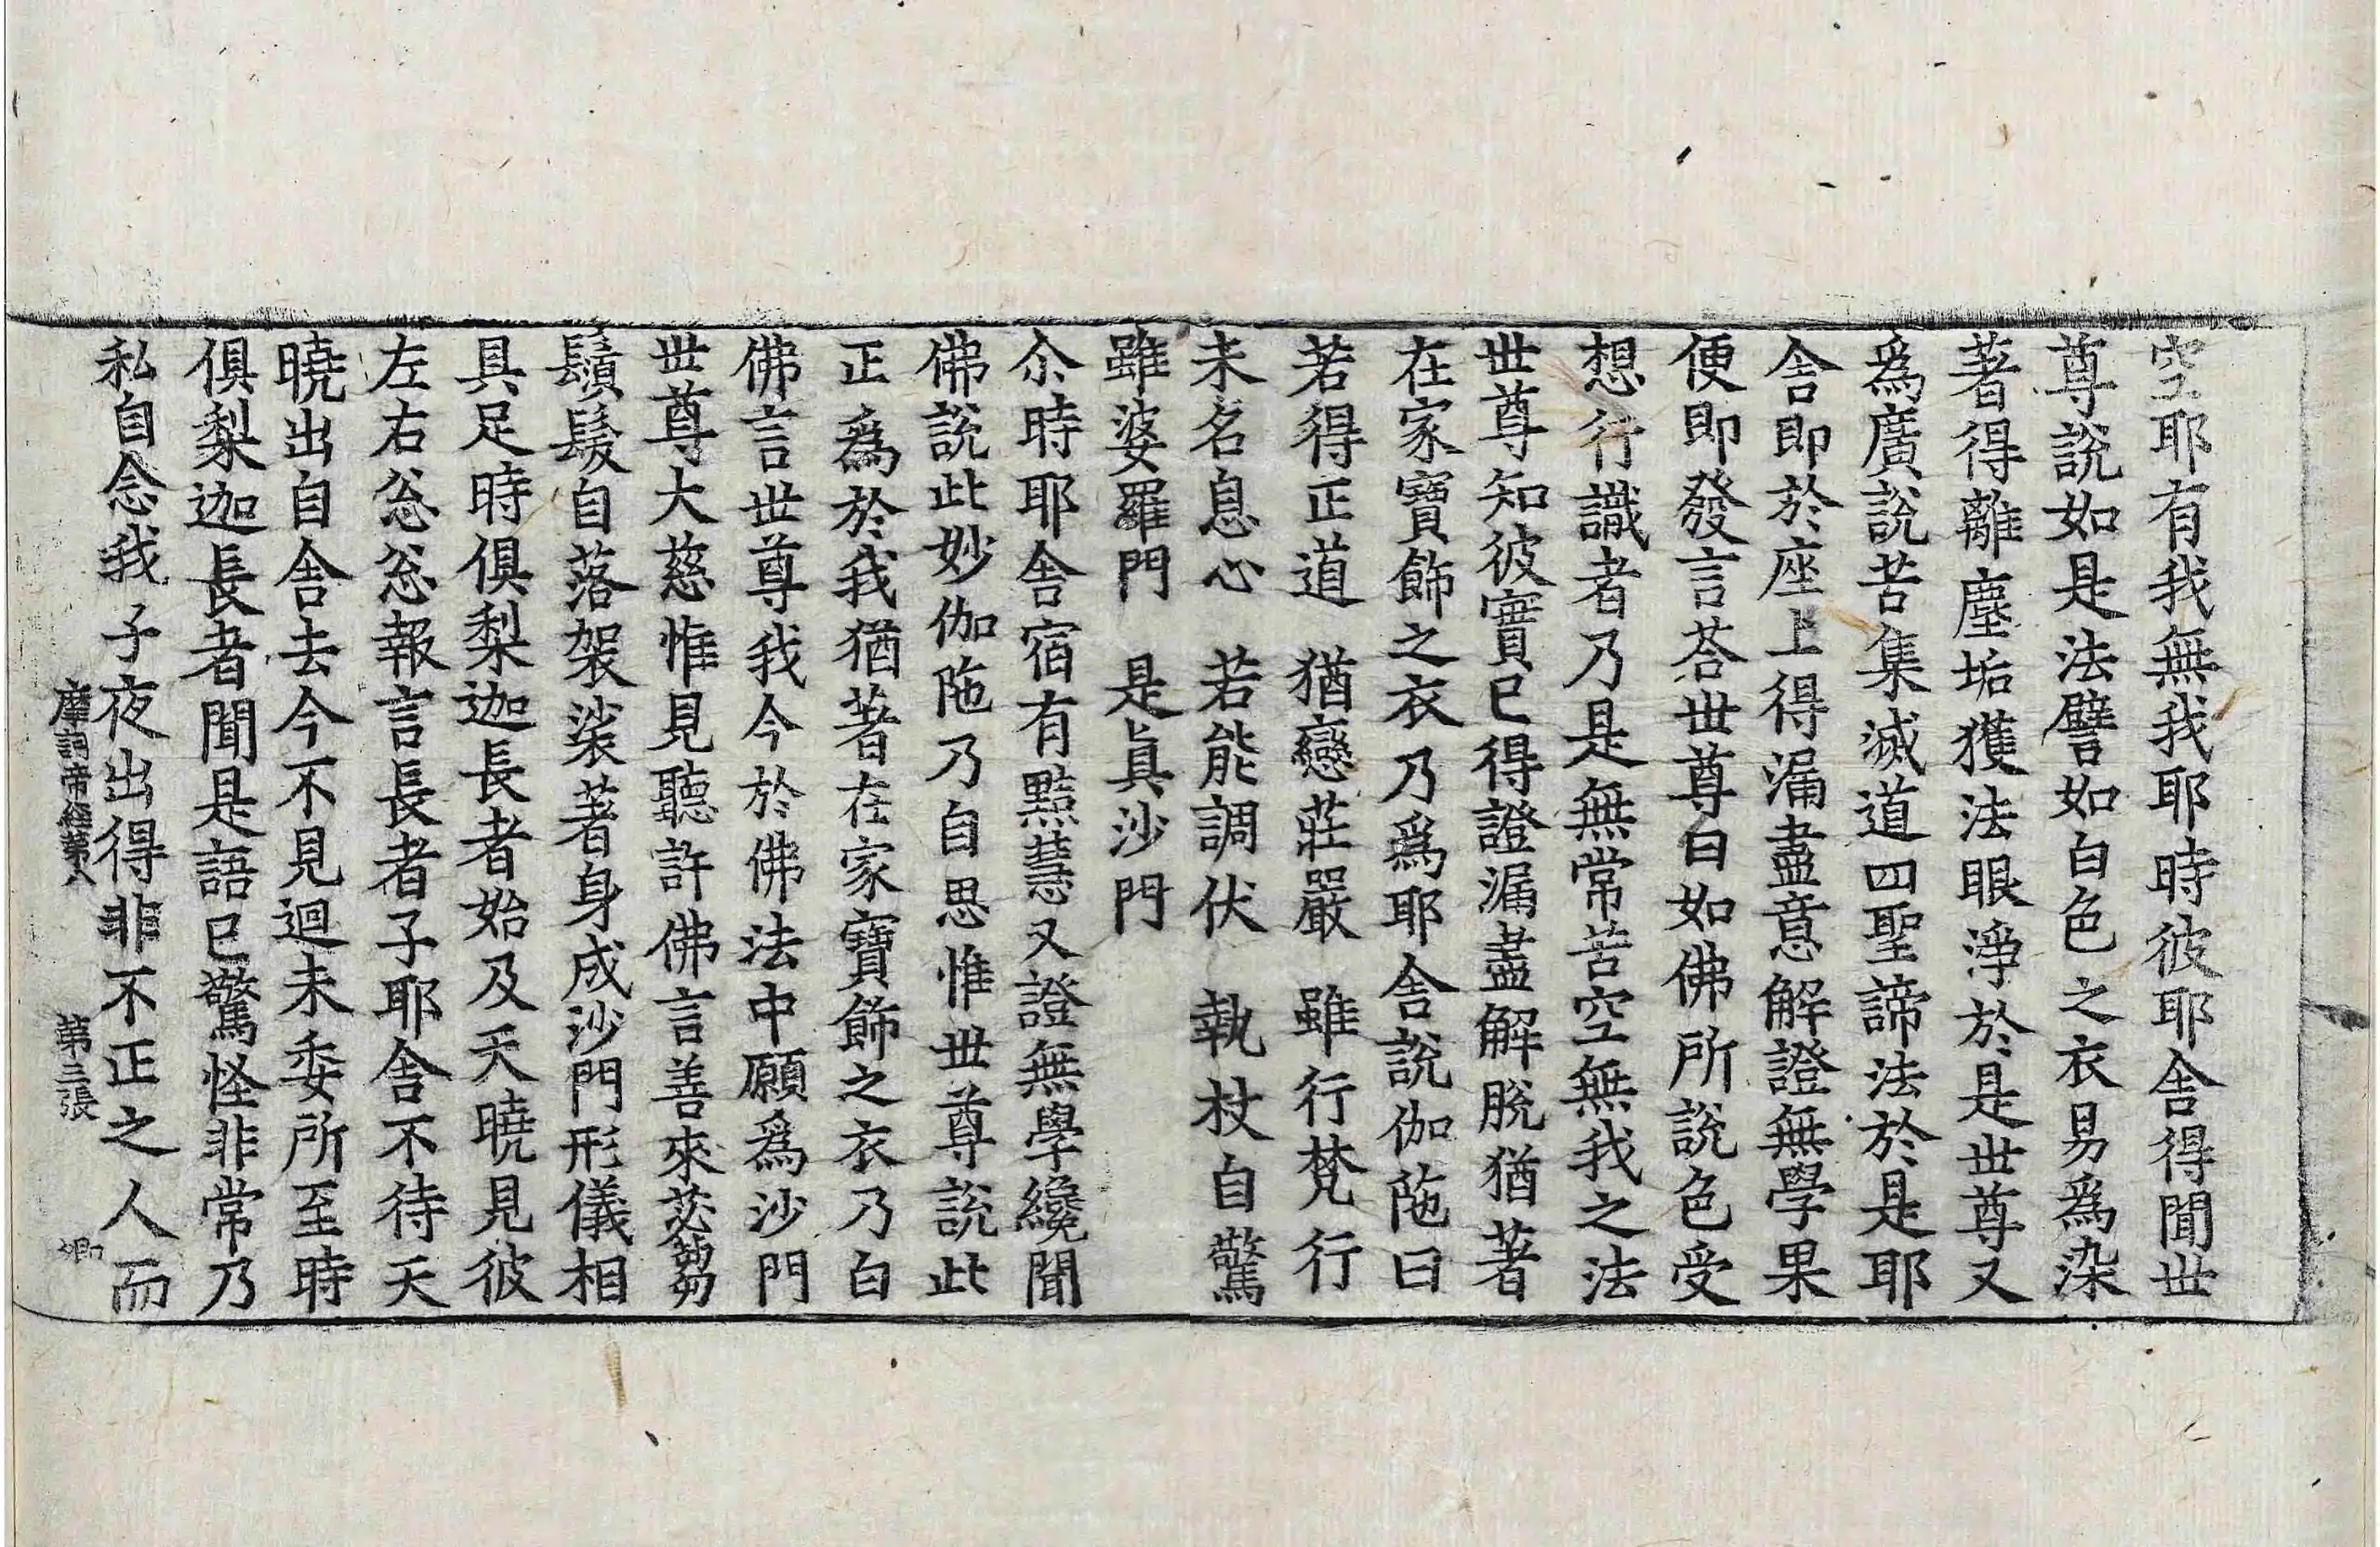 空耶有我無我耶時彼耶舍得聞世
尊說如是法譬如白色之衣易為染
著得離塵垢獲法眼淨於是世尊又
爲廣說苦集滅道四聖諦法於是耶
舍即於座上得漏盡意解證無學果
便即發言荅世尊曰如佛所說色受
想行識者乃是無常苦空無我之法
世尊知彼實已得證漏盡解脫猶著
在家寶飾之衣乃爲耶舍說伽陁曰
若得正道　猶戀莊嚴　雖行梵行
未名息心　若能調伏　執杖自驚
雖婆羅門　是眞沙門
尒時耶舍宿有黠慧又證無學纔聞
佛說此妙伽陁乃自思惟世尊說此
正為於我猶著在家寶飾之衣乃白
佛言世尊我今於佛法中願爲沙門
世尊大慈惟見聽許佛言善來苾蒭
鬚髮自落袈裟著身成沙門形儀相
具足時俱梨迦長者始及天曉見彼
左右忩忩報言長者子耶舍不待天
曉出自舍去今不見迴未委所至時
俱梨迦長者聞是語已驚怪非常乃
私自念我子夜出得非不正之人而
摩訶帝經第八　第三張　卿